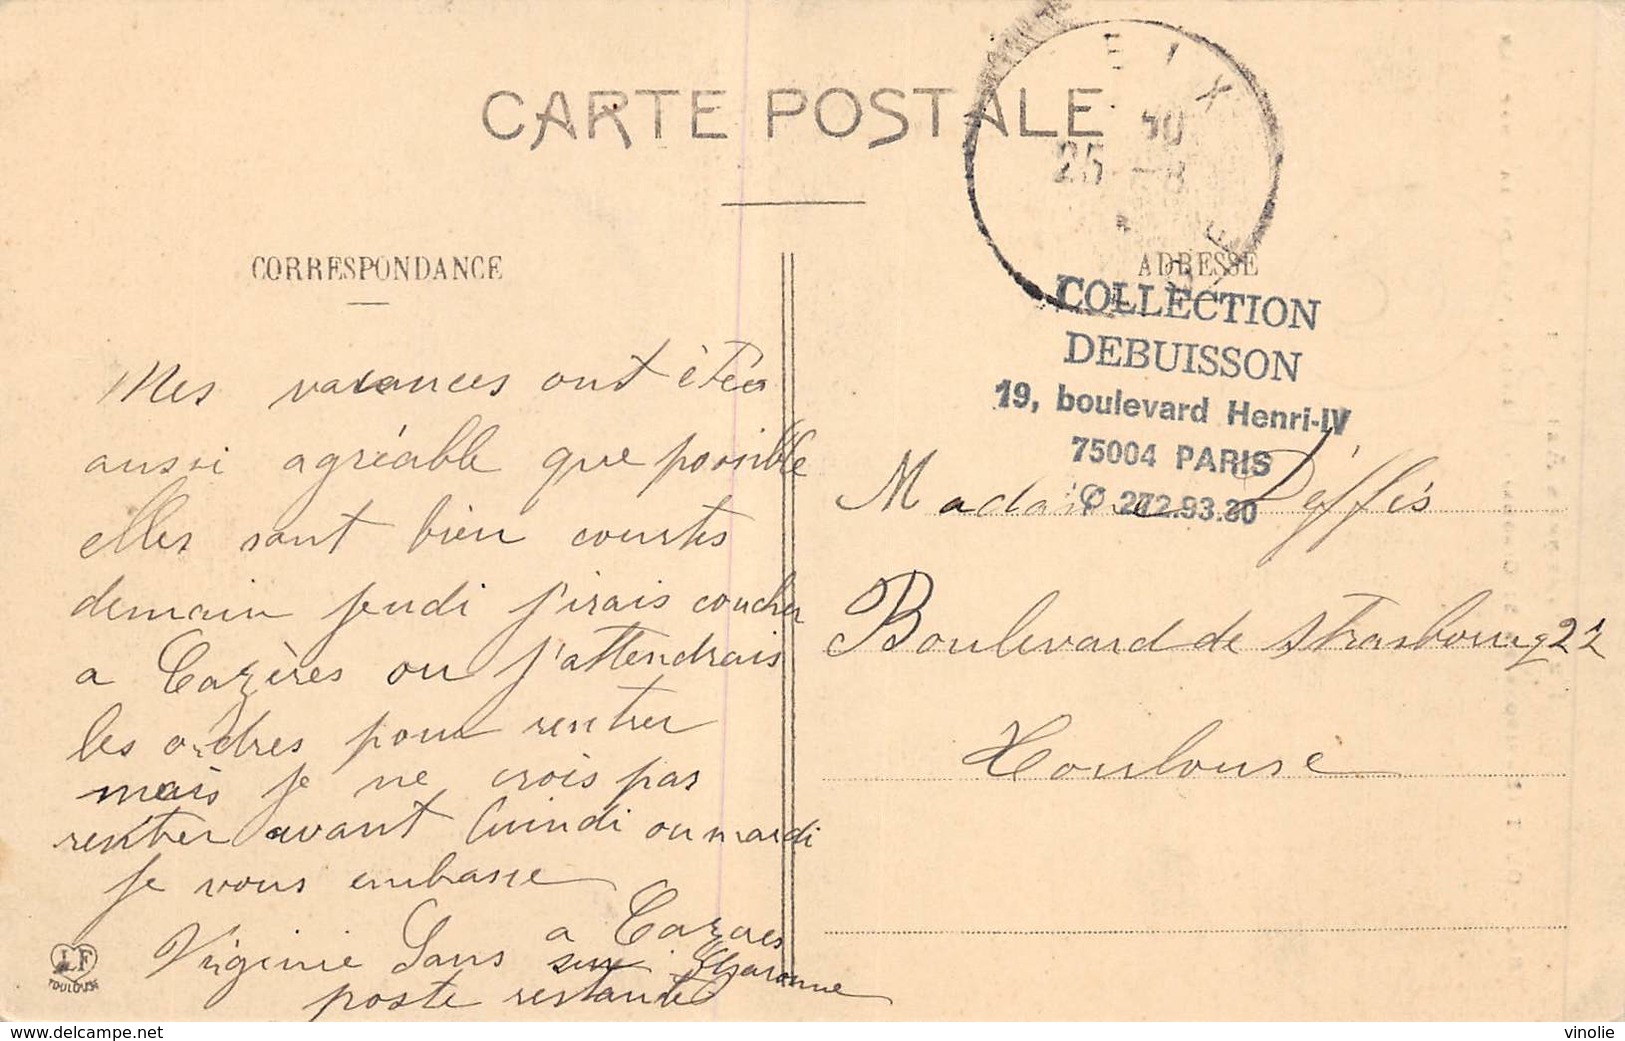 CARTE POSTALE
EIX
25 -8
CORRESPONDANCE
ADRESSE
COLLECTION
DEBUISSON
19, boulevard Henri-IV
75004 PARIS
272.93.30
Mes vacances ont étées
aussi agréable que possible
elles sont bien courtes
demain jeudi j'irais coucher
a Cazères ou j'attendrais
les ordres pour rentrer
mais je ne crois pas
rentrer avant luindi ou mardi
je vous embasse
Virginie Sans a Cazares
sur Gharonne
poste restante
Madame Déffis
Boulevard de strasbourg 22
Toulouse
LF
TOULOUSE
www.delcampe.net
vinolie